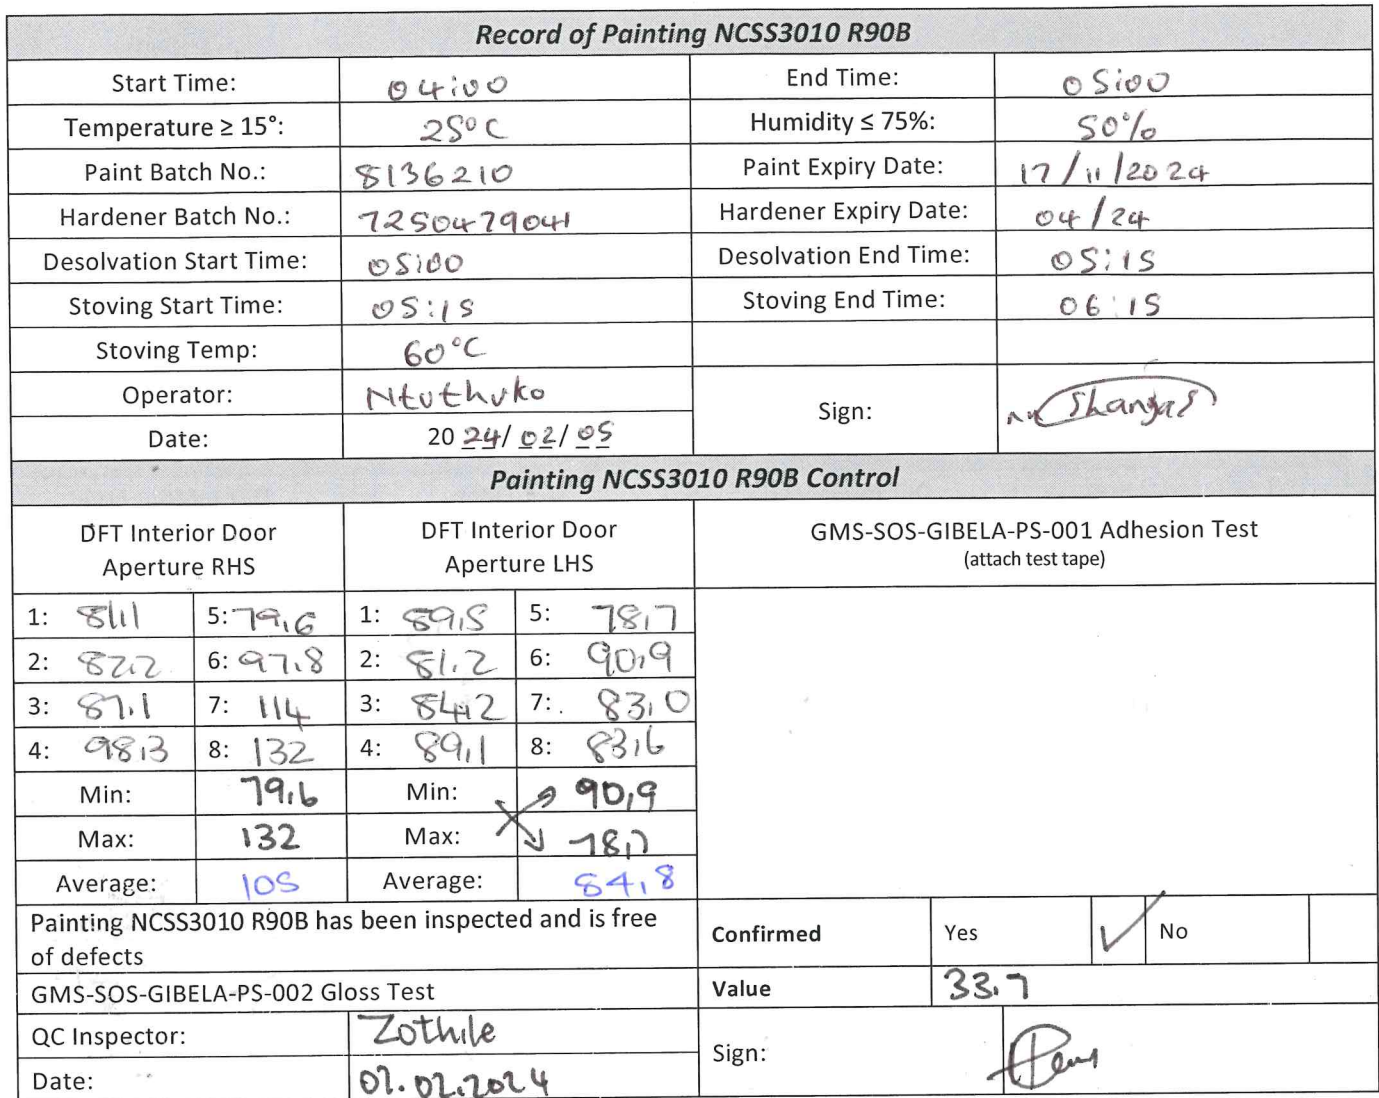 Record of Painting NCSS3010 R90B
Start Time: 04:00 End Time: 05:00
Temperature ≥ 15°: 25°C Humidity ≤ 75%: 50%
Paint Batch No.: 8136210 Paint Expiry Date: 17/11/2024
Hardener Batch No.: 7250479041 Hardener Expiry Date: 04/24
Desolvation Start Time: 05:00 Desolvation End Time: 05:15
Stoving Start Time: 05:15 Stoving End Time: 06:15
Stoving Temp: 60°C
Operator: Ntuthuko Sign:
Date: 2024/02/05
Painting NCSS3010 R90B Control
DFT Interior Door Aperture RHS DFT Interior Door Aperture LHS GMS-SOS-GIBELA-PS-001 Adhesion Test
(attach test tape)
1: 81,1 5: 79,6 1: 89,5 5: 78,7
2: 82,2 6: 97.8 2: 81,2 6: 90,9
3: 87,1 7: 114 3: 84,2 7: 83,0
4: 98,3 8: 132 4: 89,1 8: 83,6
Min: 79,6 Min: 90,9
Max: 132 Max: 78,7
Average: 105 Average: 84,8
Painting NCSS3010 R90B has been inspected and is free of defects Confirmed Yes ✓ No
GMS-SOS-GIBELA-PS-002 Gloss Test Value 33.7
QC Inspector: Zothile Sign:
Date: .02.2024